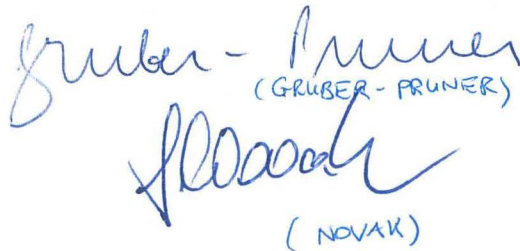 Gruber-Pruner
(GRUBER-PRUNER)
(NOVAK)